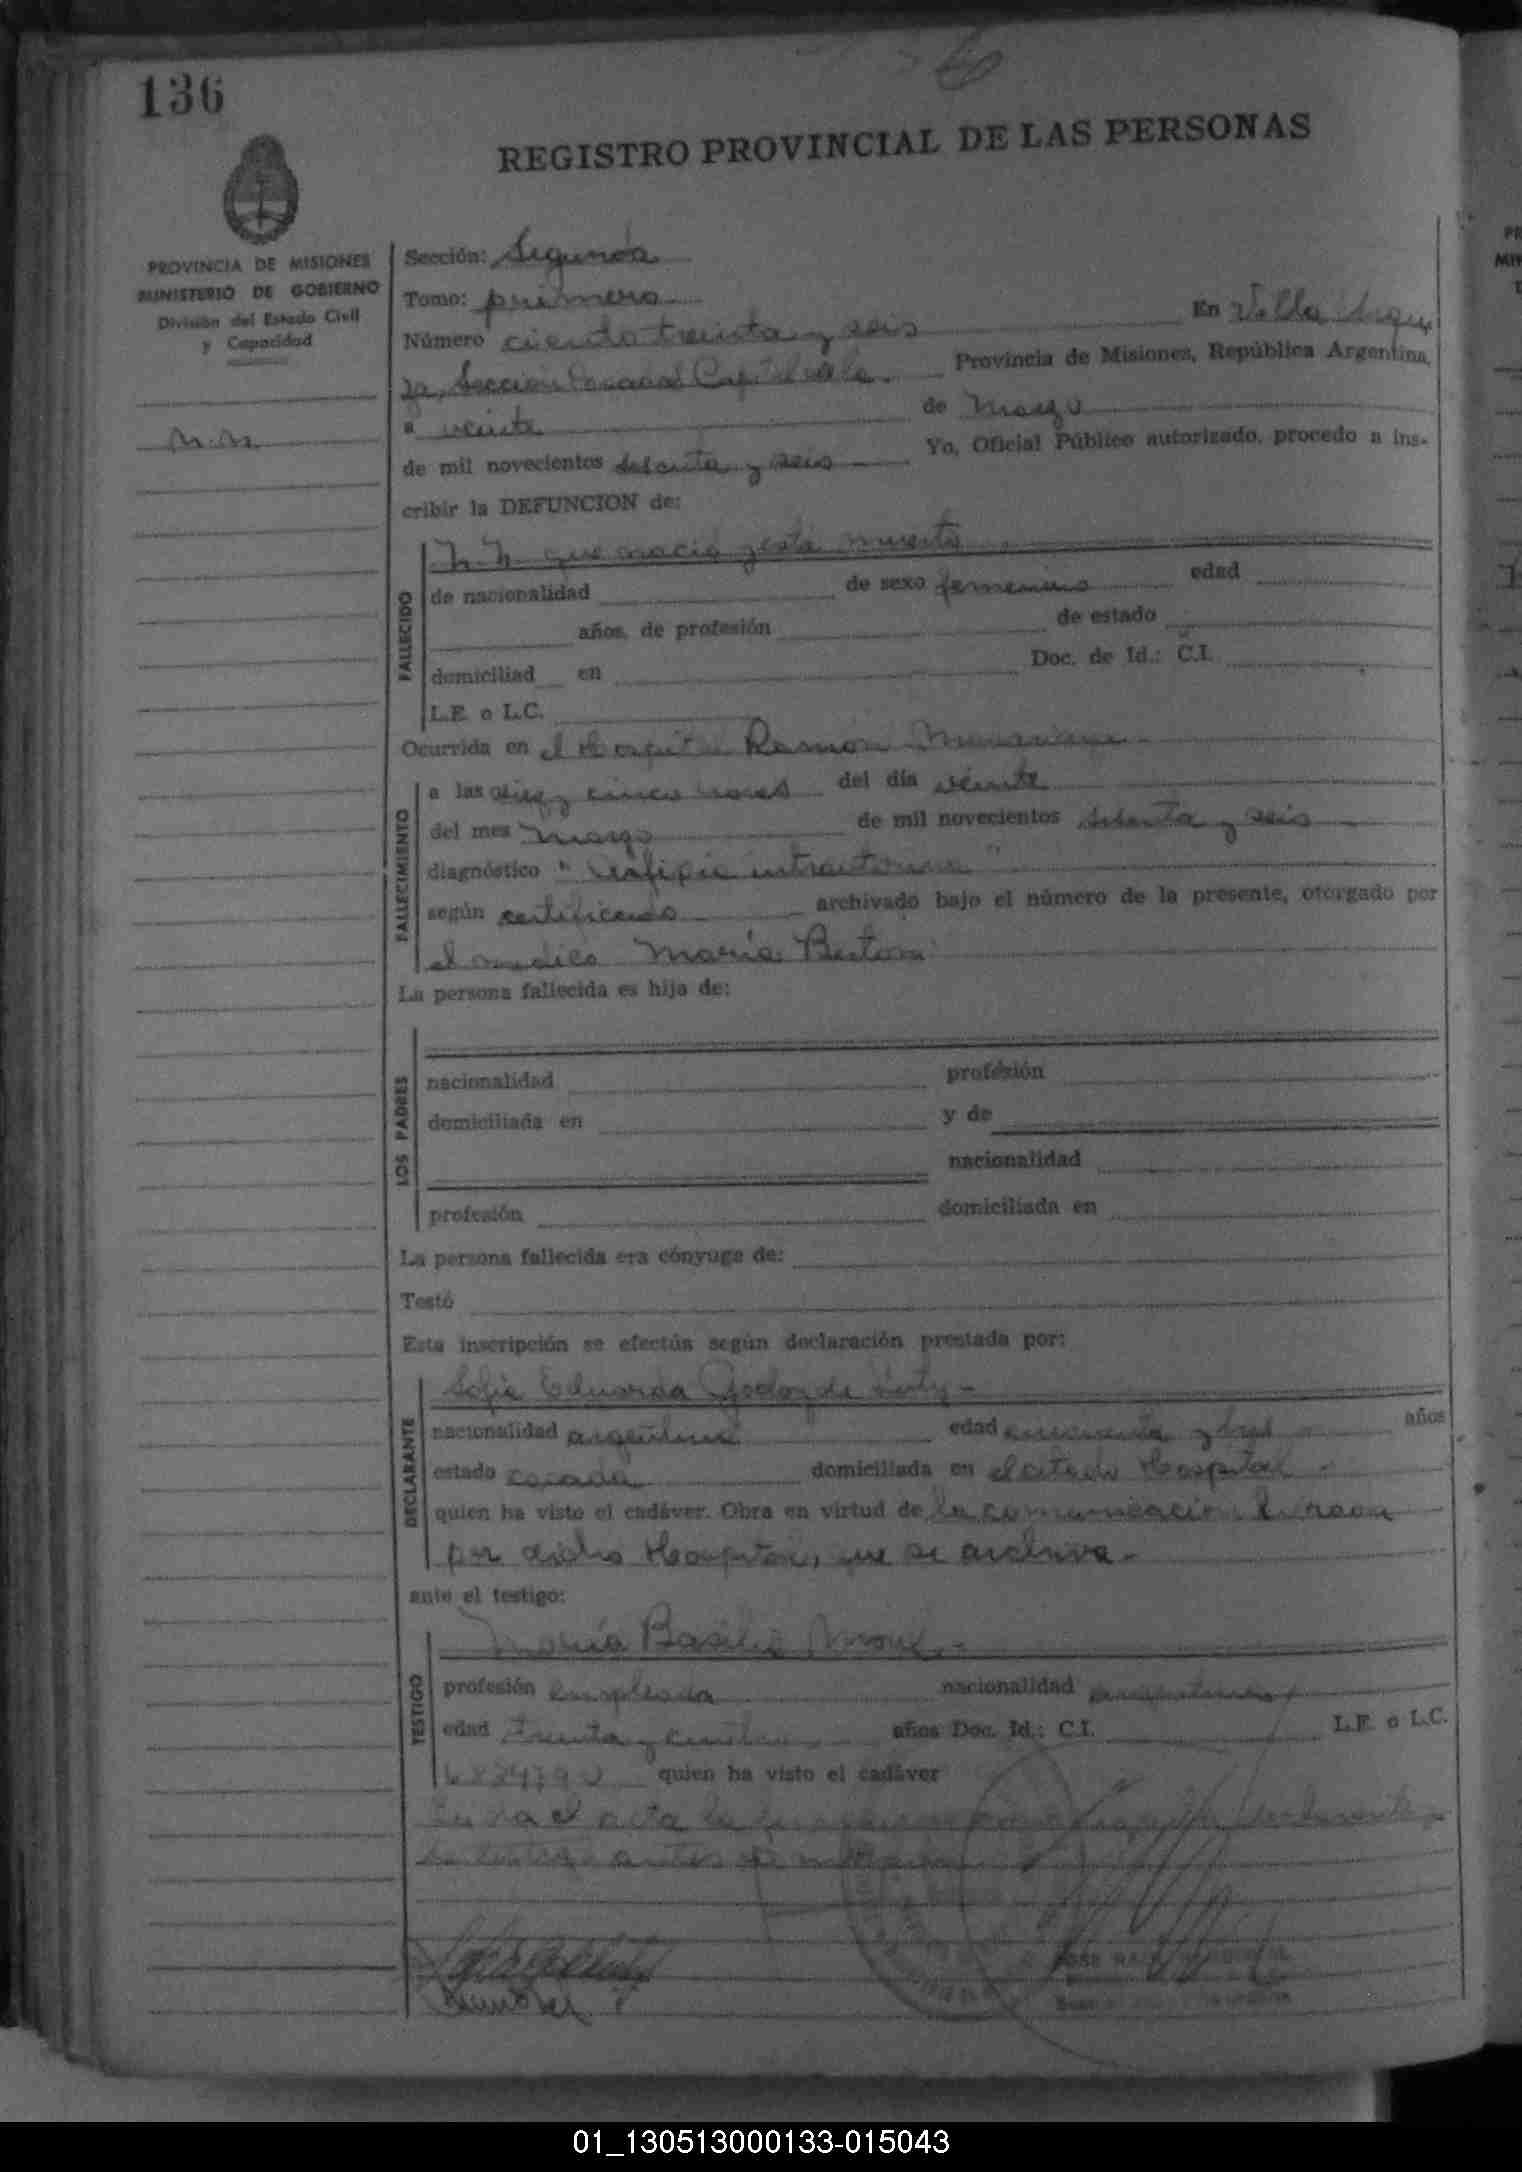 136
REGISTRO PROVINCIAL DE LAS PERSONAS
PROVINCIA DE MISIONES
MINISTERIO DE GOBIERNO
División del Estado Civil
y Capacidad
n.n
Sección: Segunda
Tomo: primero
Número ciento treinta y seis En Villa Urqui
za, Sección Capital Provincia de Misiones, República Argentina,
a veinte de Marzo
de mil novecientos setenta y seis Yo, Oficial Público autorizado, procedo a ins-
cribir la DEFUNCION de:
FALLECIDO
N.N. que nació y está muerta
de nacionalidad de sexo femenino edad
años, de profesión de estado
domiciliad en Doc. de Id.: C.I.
L.E. o L.C.
Ocurrida en el Hospital Ramón Madariaga
FALLECIMIENTO
a las diez y cinco horas del día veinte
del mes Marzo de mil novecientos setenta y seis
diagnóstico " asfixia intrauterina "
según certificado archivado bajo el número de la presente, otorgado por
el medico María Bertoni
La persona fallecida es hija de:
LOS PADRES
nacionalidad profesión
domiciliada en y de
nacionalidad
profesión domiciliada en
La persona fallecida era cónyuge de:
Testó
Esta inscripción se efectúa según declaración prestada por:
DECLARANTE
Sofía Eduarda Godoy de
nacionalidad argentina edad cincuenta y tres años
estado casada domiciliada en el citado Hospital
quien ha visto el cadáver. Obra en virtud de la comunicación librada
por dicho Hospital, que se archiva.-
ante el testigo:
TESTIGO
María Basilia
profesión empleada nacionalidad argentina
edad treinta y cuatro años Doc. Id.: C.I. L.E. o L.C.
quien ha visto el cadáver
el acta la
01_130513000133-015043